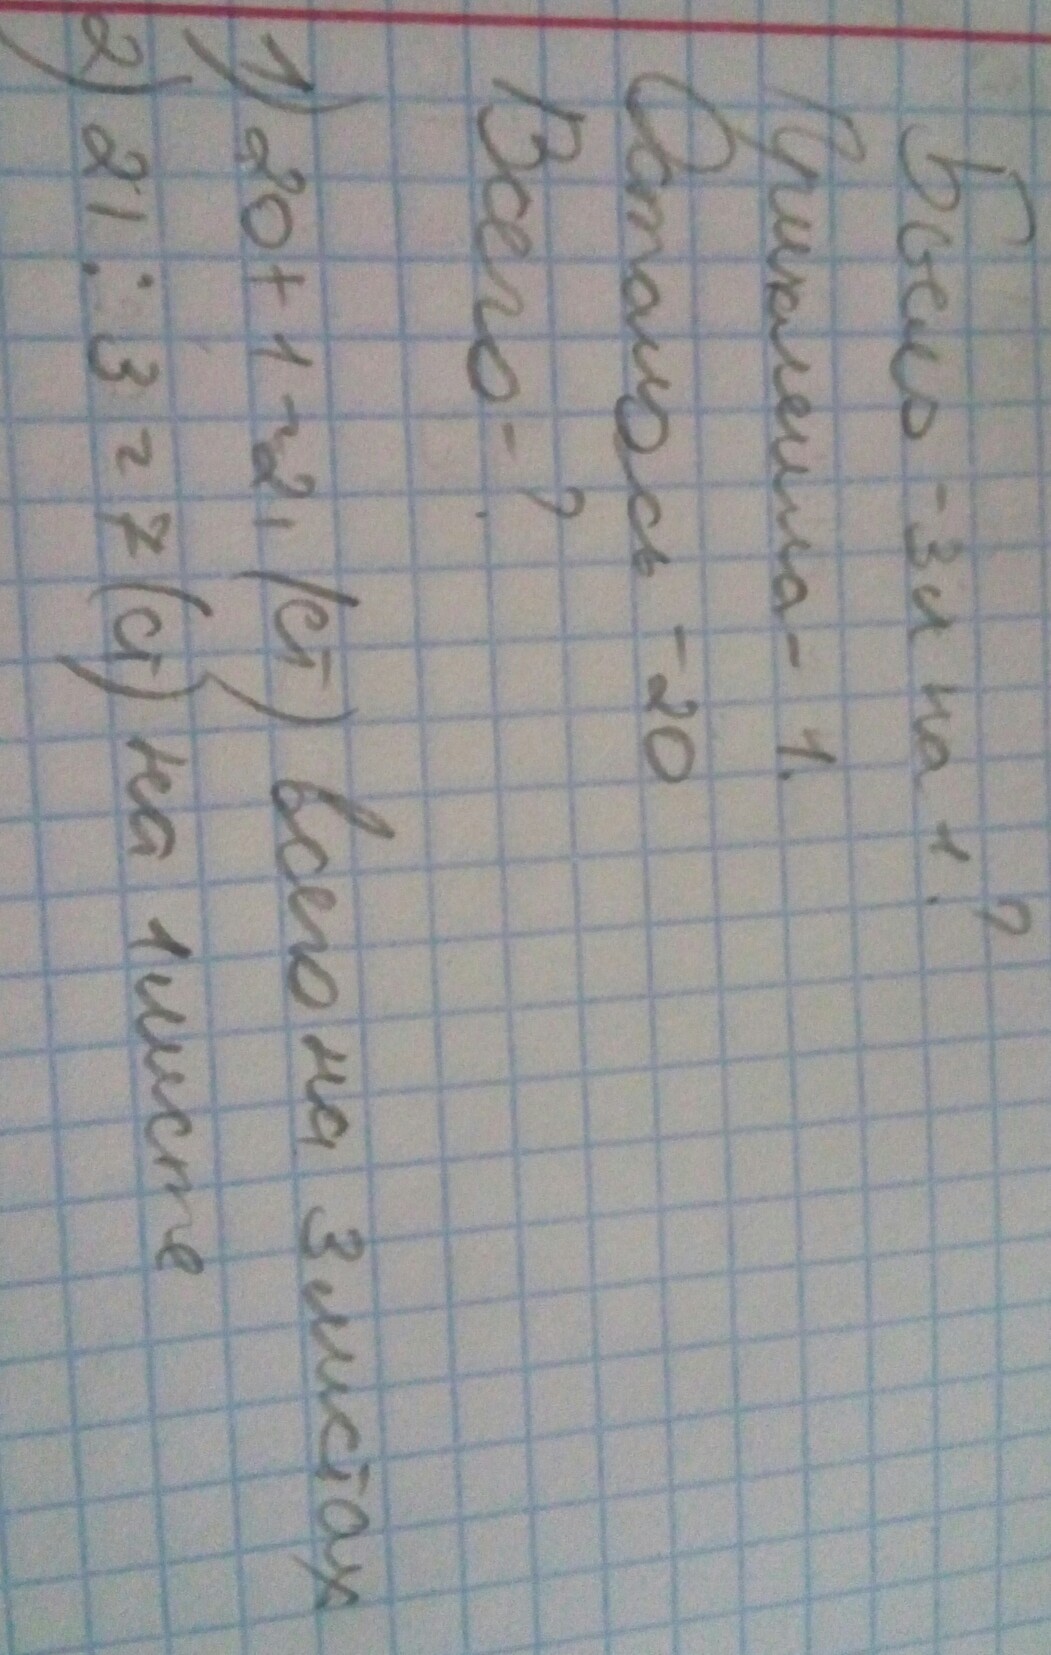 Было - 3л на 1. ?
Приклеила - 1.
Осталось - 20
Всего - ?
1) 20 + 1 = 21 (ст) всего на 3 листах
2) 21 : 3 = 7 (ст) на 1 листе